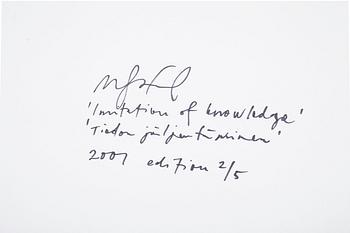 'Imitation of knowledge'
'Tiedon jäljentäminen'
2001 edition 2/5